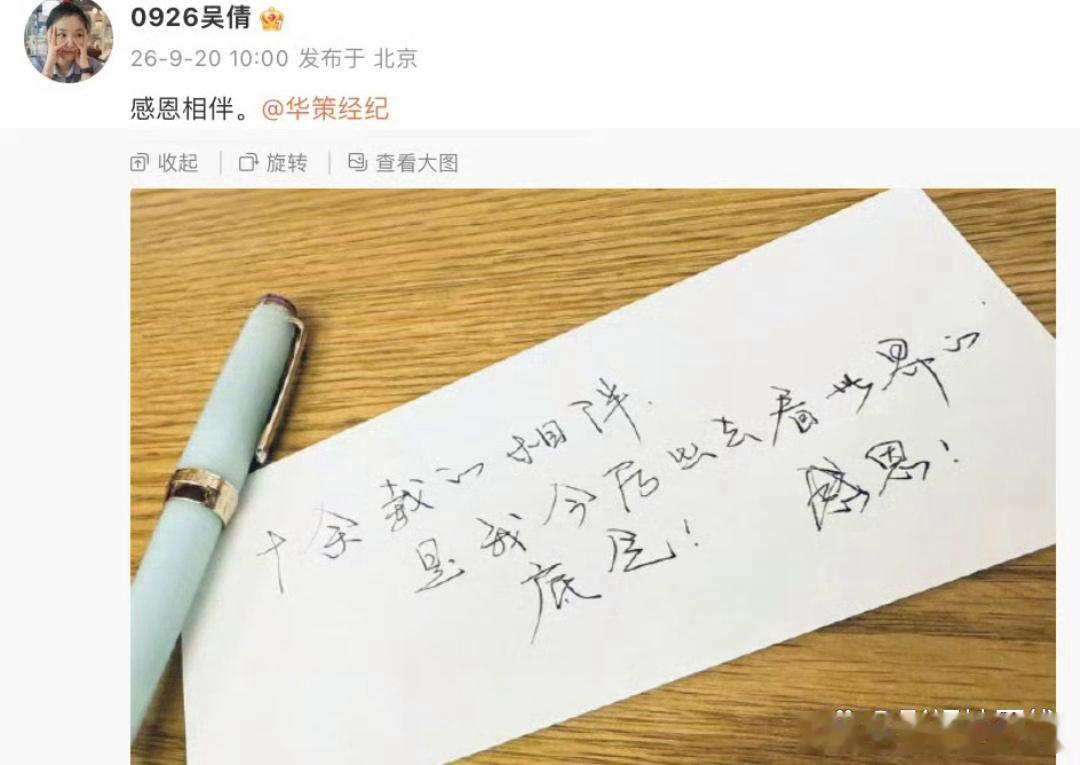 0926吴倩
26-9-20 10:00 发布于 北京
感恩相伴。@华策经纪
收起 旋转 查看大图
十余载的相伴.
是我今后出去看世界的
底气!
感恩!